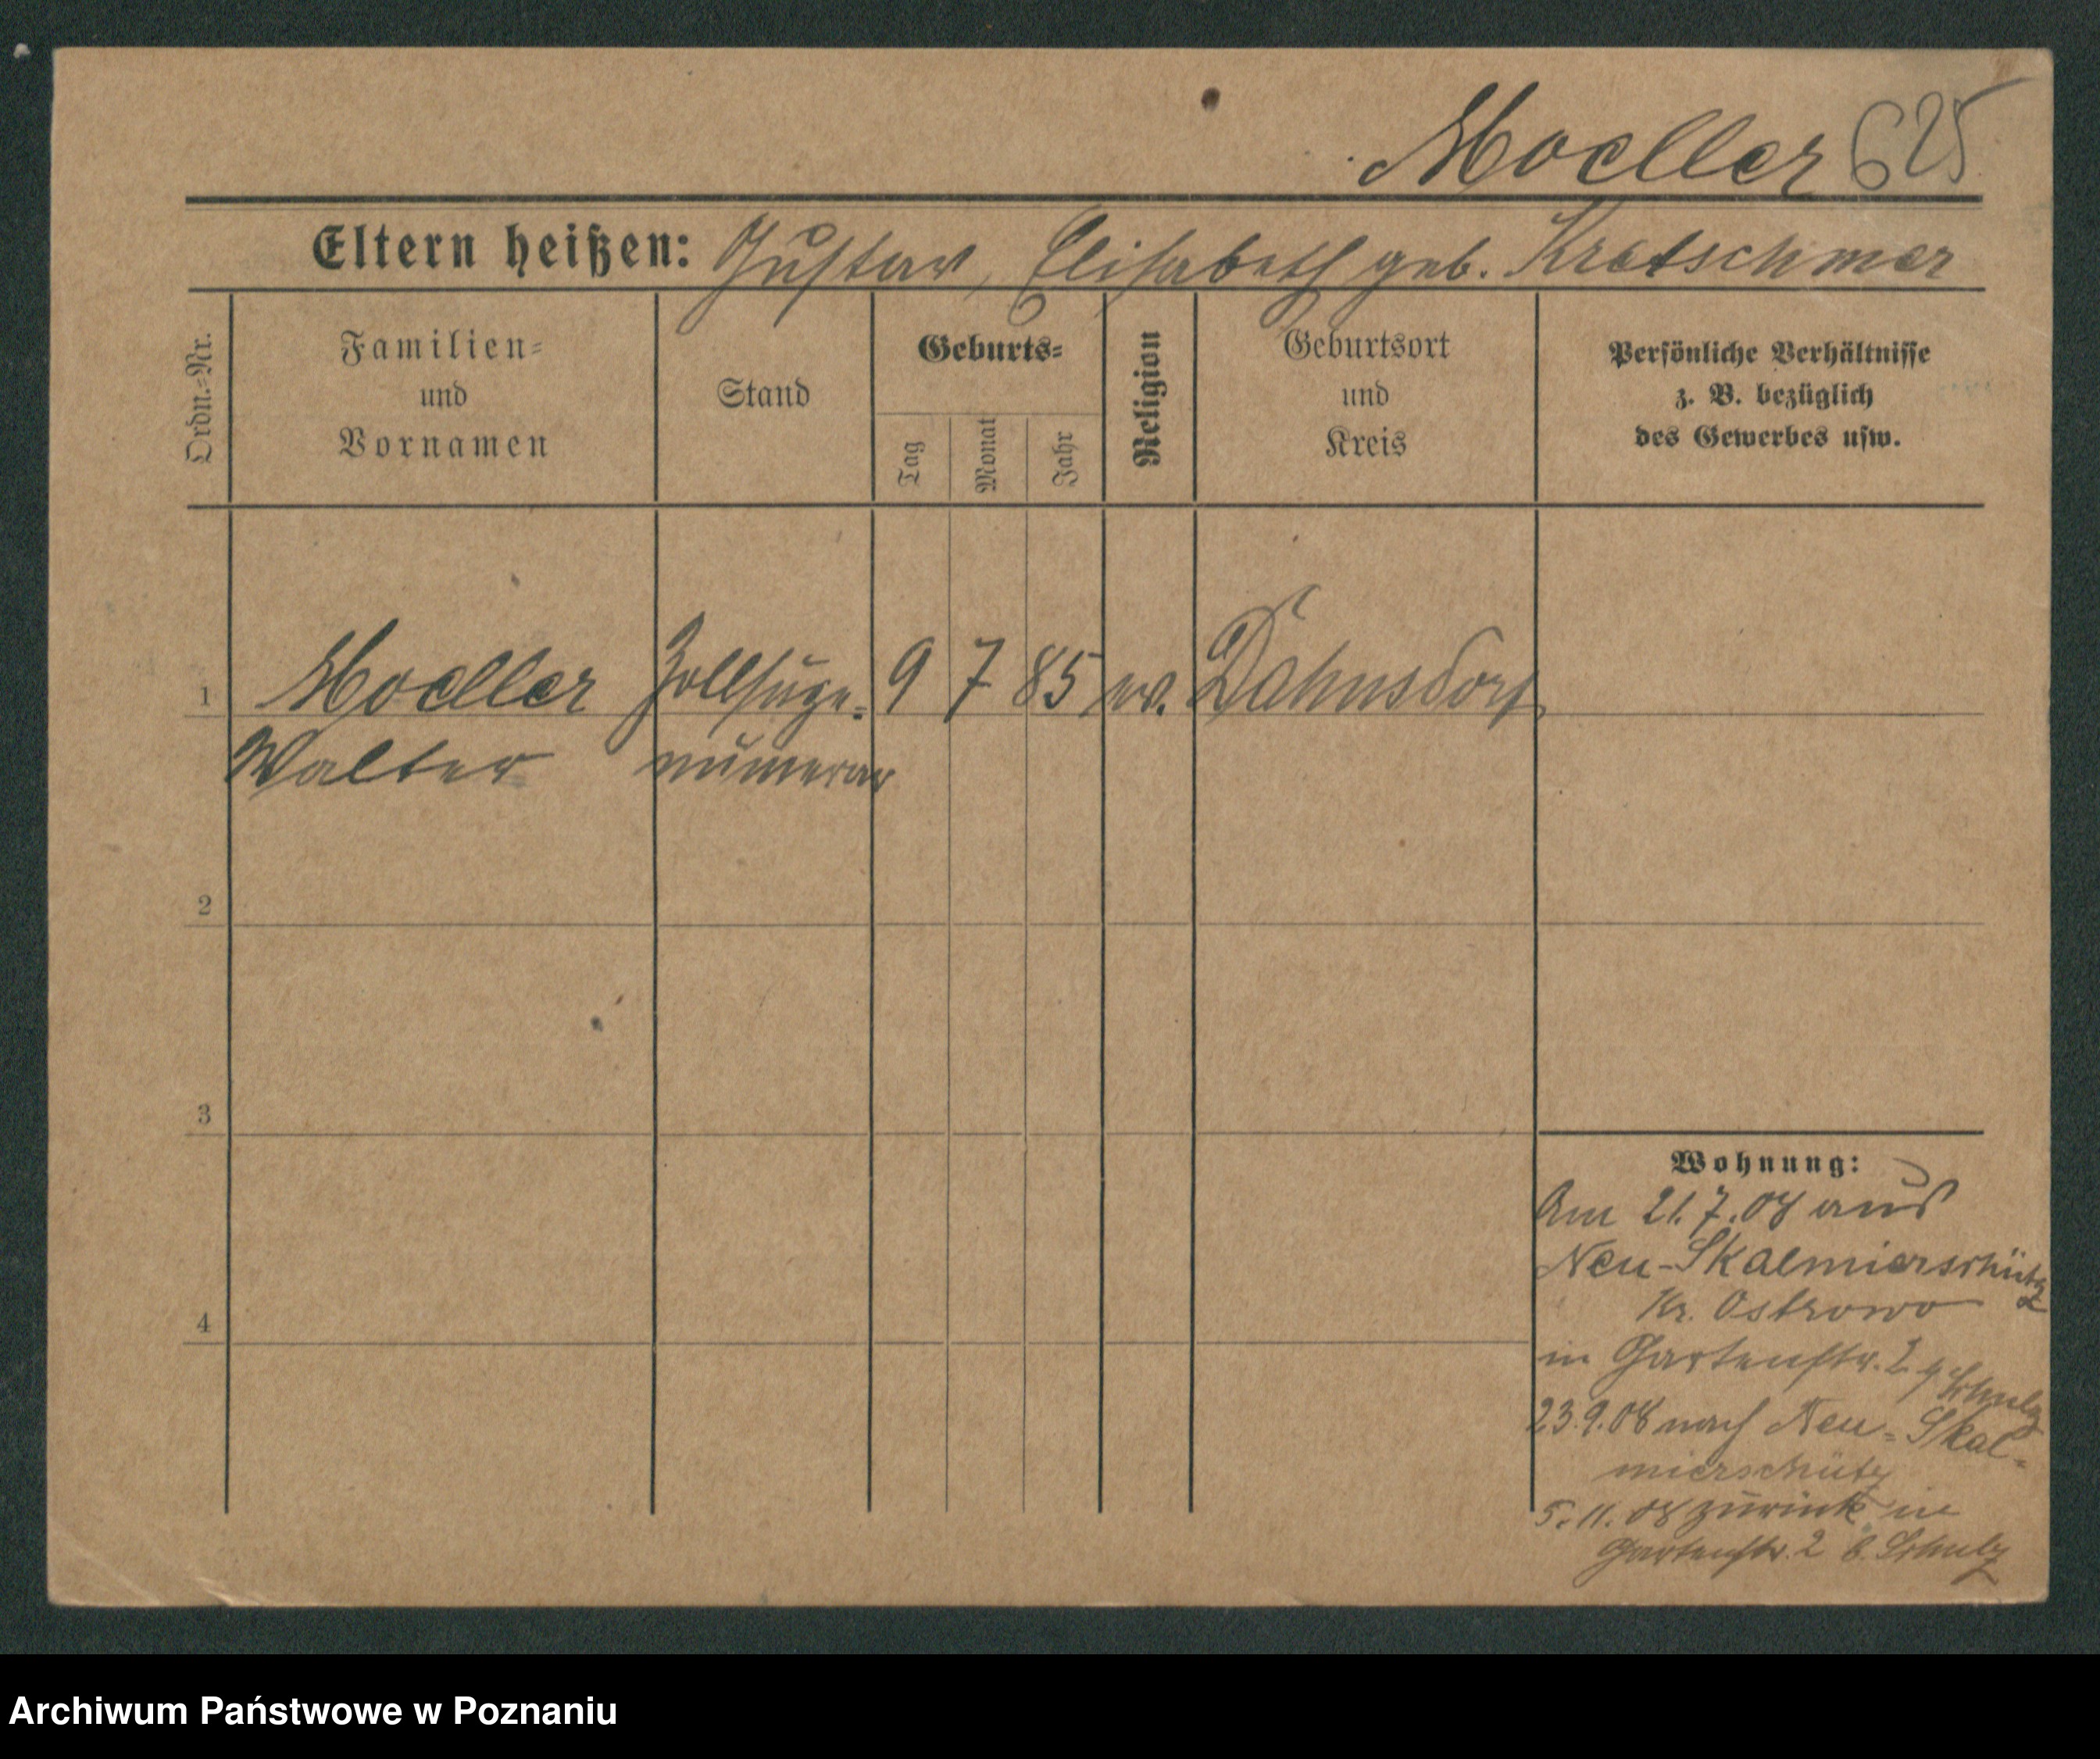 Moeller 625
Eltern heißen: Gustav, Elisabeth geb. Kretschmer
Ordn.=Nr.
Familien=
und
Vornamen
Stand
Geburts=
Tag
Monat
Jahr
Religion
Geburtsort
und
Kreis
Persönliche Verhältnisse
z. B. bezüglich
des Gewerbes usw.
1 Moeller Zollsupe= 9 7 85 ev. Dahnsdorf
Walter numerar
2
3
4
Wohnung:
Am 21.7.08 aus
Neu-Skalmierschütz
Kr. Ostrowo
in Gartenstr. 2 Schulz
23.9.08 nach Neu=Skal=
mierschütz
5.11.08 zurück in
Gartenstr. 2 b. Schulz
Archiwum Państwowe w Poznaniu